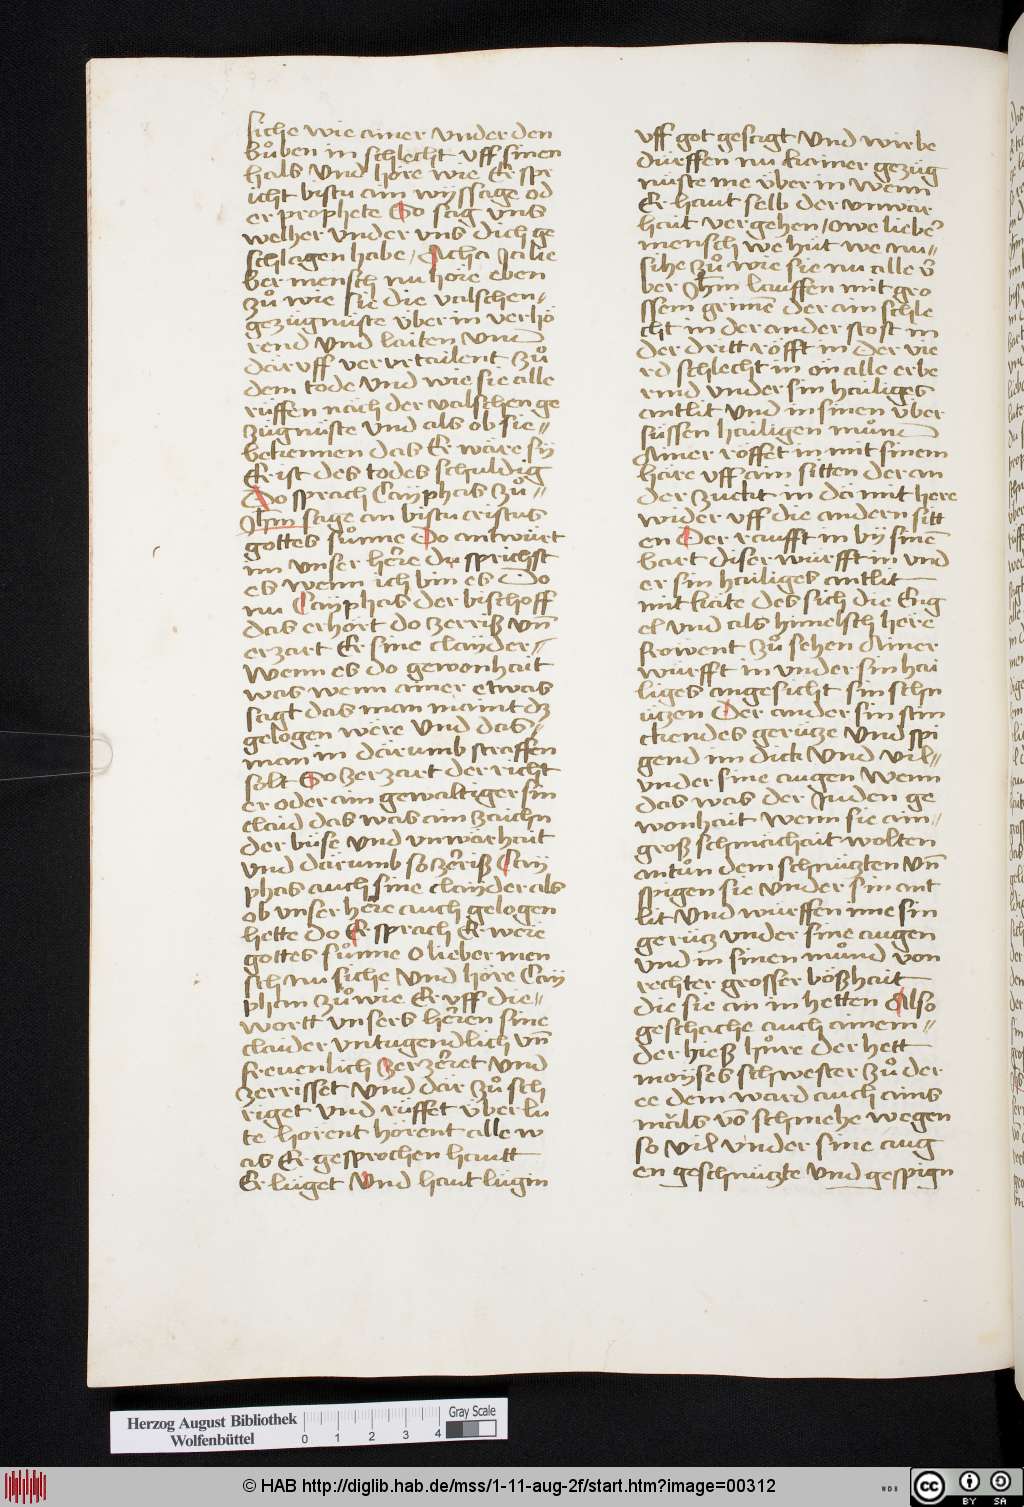 siche wie ainer vnder den
bůben in schlecht vff sinen
hals vnd höre wie Er spr
icht bistu ain wyssage od
er prophete So sag vns
welher vnder vns dich ge
schlagen habe / Acha Ja lie
ber mensch nu höre eben
zů wie sie die valschen-
gezügnüste über in verhö
rend vnd laiten vnd
dar vff vervrtailent zů
dem tode vnd wie sie alle
rüffen nach der valschen ge
zügnüste vnd als ob sie-
bekennen das Er wäre sÿ
Er ist des todes schuldig
Do sprach Cayphas zů-
Jhm sage an bistu cristus
gottes sůnne Do antwürt
im vnser herre du sprichst
es wenn ich bin es Do
nu Cayphas der bischoff
das erhort do zerriß vn̄
erzart Er sine clayder-
Wenn es do gewonhait
was wenn ainer etwas
sagt das man maint dz
gelogen were vnd das-
man in darumb straffen
solt So zerzart der richt
er oder ain gewaltiger sin
claid das was ain zaichn
der büse vnd vnwarhait
vnd darumb so zerriß Caÿ
phas auch sine clayder als
ob vnser herre auch gelogen
hette do Er sprach Er were
gottes sůnne O lieber men
sch nu siche vnd höre Caÿ
pham zů wie Er vff die-
wortt vnsers herren sine
claider vntugendlich vn̄
freuenlich zerzerret vnd
zerrisset vnd dar zů sch
riget vnd rüffet über lu
te hörent hörent alle w
as Er gesprochen hautt
Er lüget vnd haut lügin
vff got gesagt vnd wir be
dürffen nu kainer gezüg
nüste me über in wenn
Er haut selb der vnwar
hait vergehen / Owe lieber
mensch we hüt we nu-
sihe zů wie sie nu alle v̄
ber Jhm lauffen mit gro
ssem grimē der ain schle
cht in der ander stost in
der dritt röfft in der vie
rd schlecht in on alle erbe
rmd vnder sin hailiges
antlit vnd in sinen über
süssen hailigen můnd
Ainer röffet in mit sinem
hare vff ain sitten der an
der zuckt in da mit here
wider vff die andern sitt
en Der raufft in bÿ sinē
bart diser würfft in vnd
er sin hailiges antlit
mit kaite des sich die Eng
el vnd als himelsch here
frowent zů sehen Ainer
würfft in vnder sin hai
liges angesicht sin schn
ützen Der ander sin stin
ckendes gerütze vnd spi
gend im dick vnd vil-
vnder sine augen Wenn
das was der Juden ge
wonhait wenn sie ain-
groß schmachait wolten
antůn dem schnützten vn̄
spigen sie vnder sin ant
lit vnd würffen ime sin
gerütz vnder sine augen
vnd in sinen můnd von
rechter grosser bößhait
die sie an in hetten Also
geschache auch ainem-
der hieß hůre der hett
moÿses schwester zů der
ee dem ward auch ains
mals vō schmehe wegen
so vil vnder sine aug
en geschnützte vnd gespign
Herzog August Bibliothek
Wolfenbüttel
0 1 2 3 4
Gray Scale
© HAB http://diglib.hab.de/mss/1-11-aug-2f/start.htm?image=00312
WDB
CC BY SA